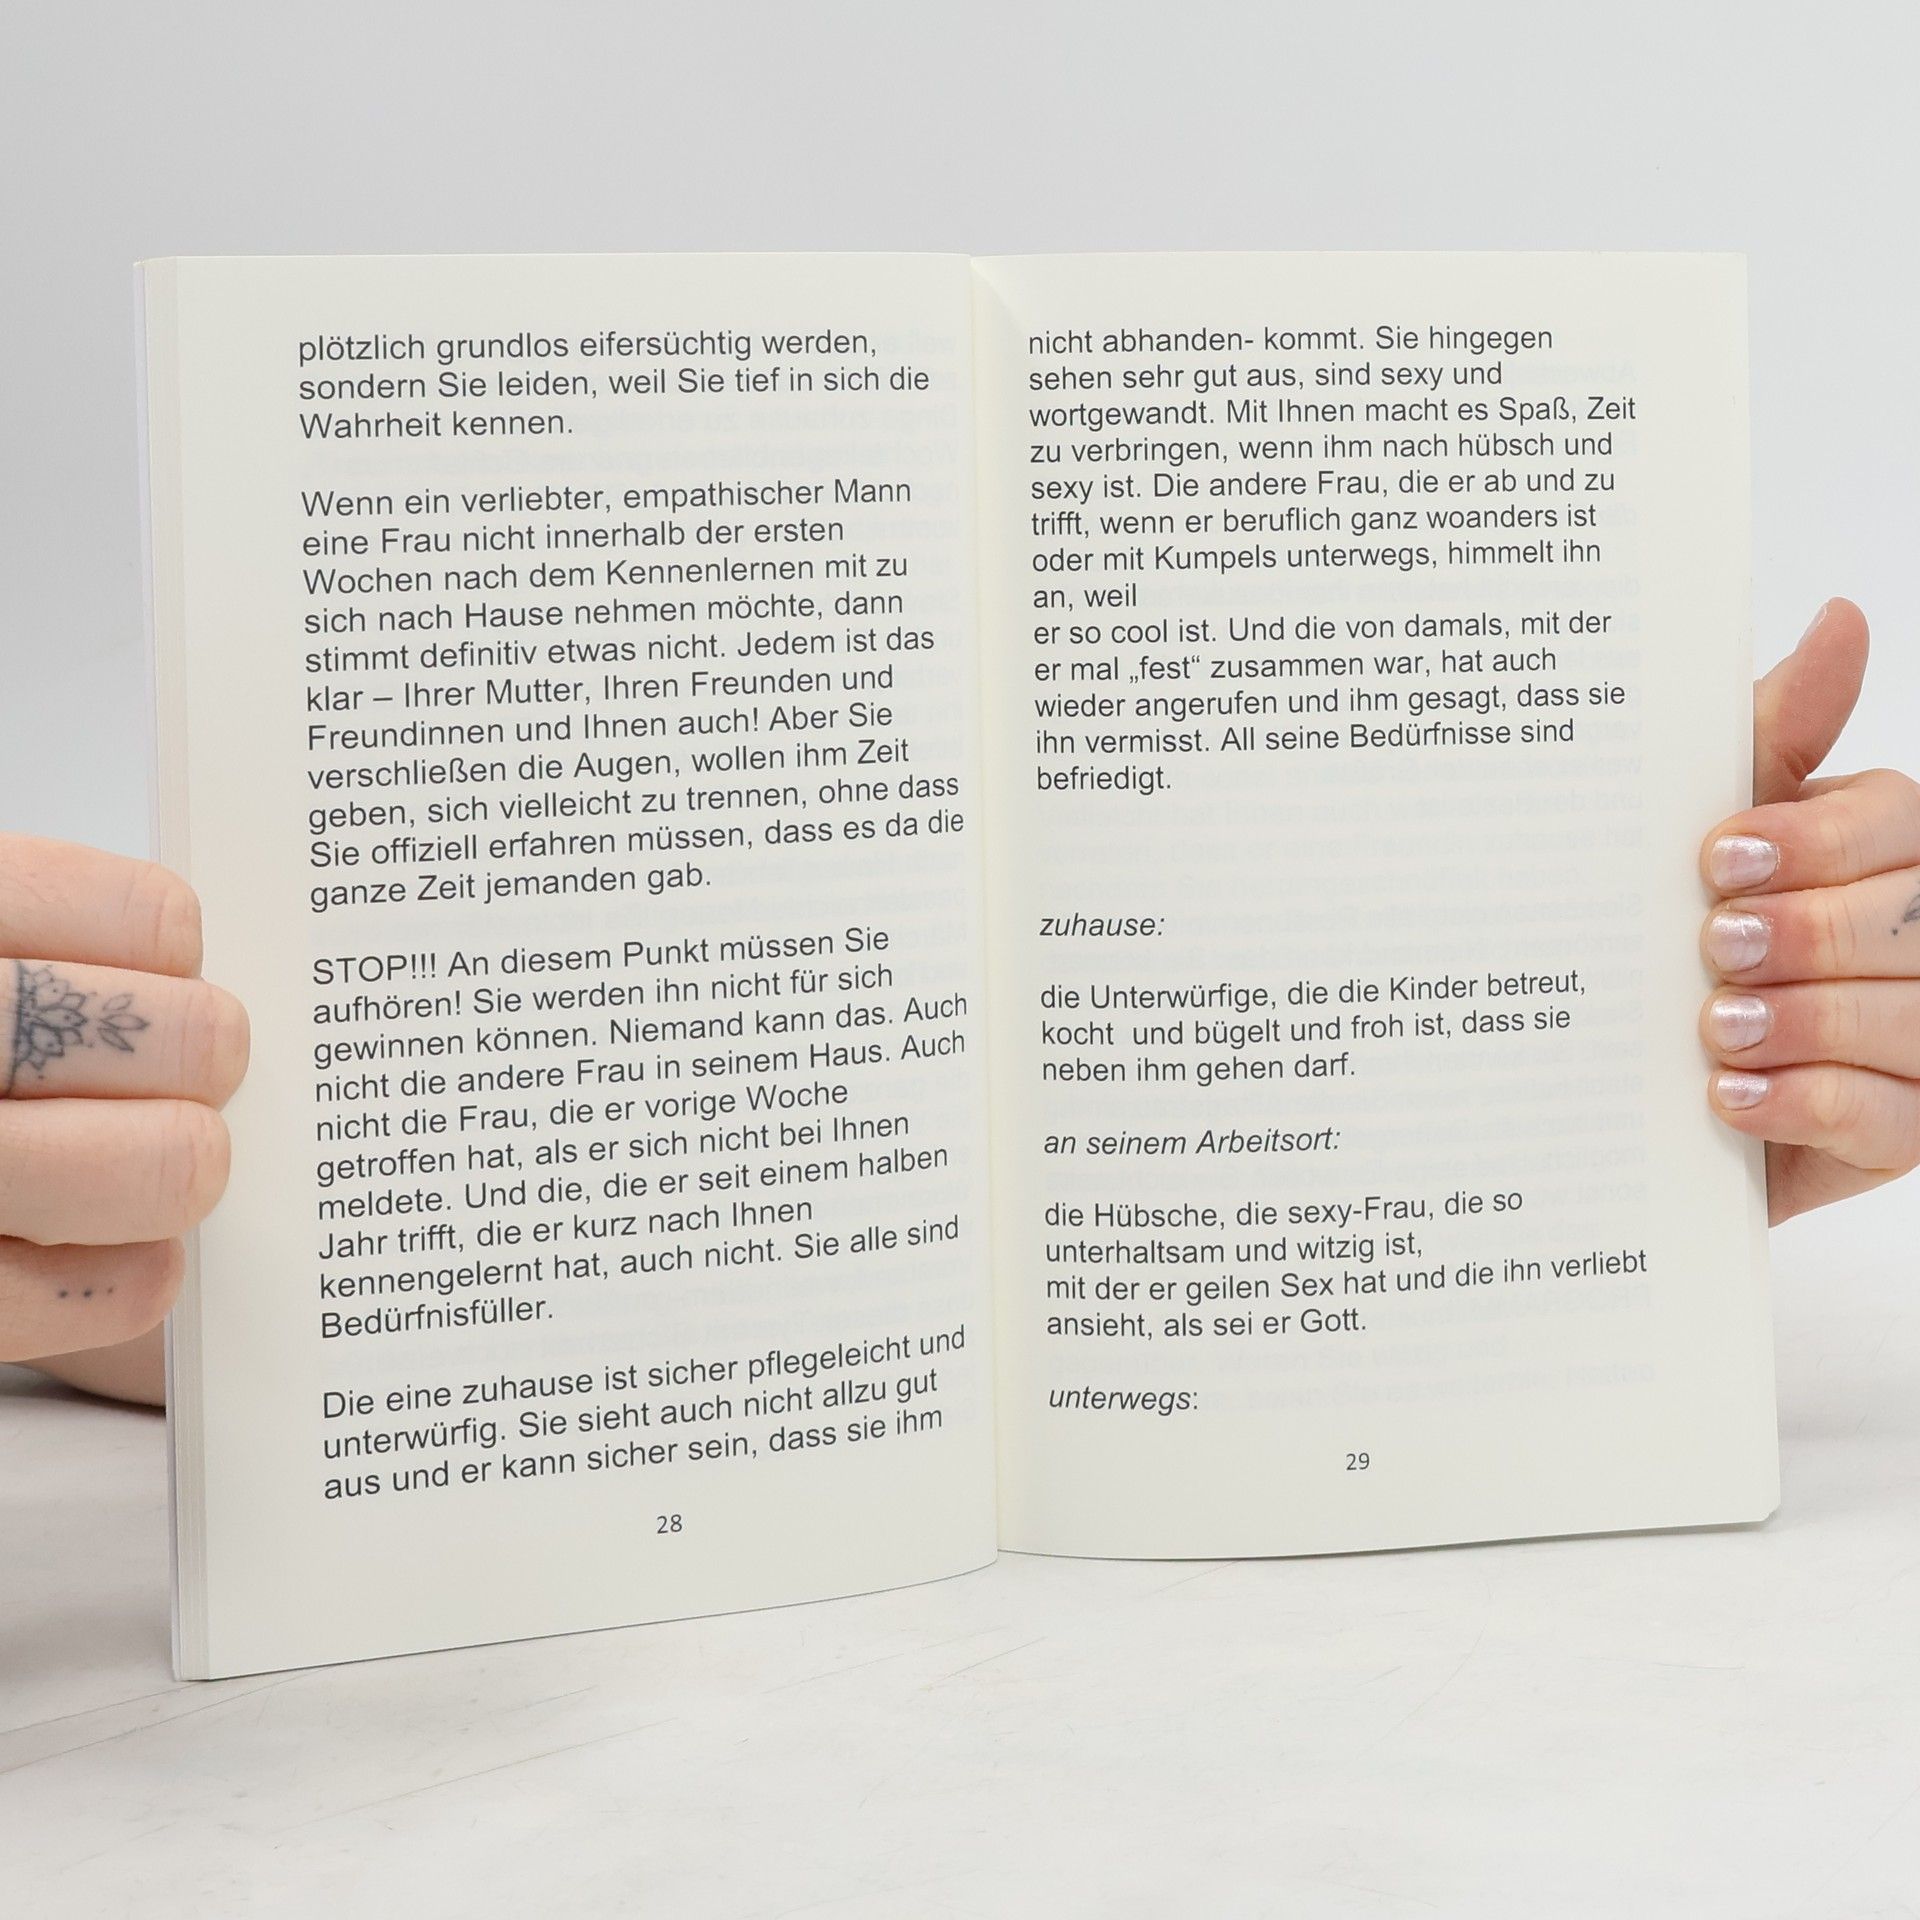 plötzlich grundlos eifersüchtig werden,
sondern Sie leiden, weil Sie tief in sich die
Wahrheit kennen.
Wenn ein verliebter, empathischer Mann
eine Frau nicht innerhalb der ersten
Wochen nach dem Kennenlernen mit zu
sich nach Hause nehmen möchte, dann
stimmt definitiv etwas nicht. Jedem ist das
klar – Ihrer Mutter, Ihren Freunden und
Freundinnen und Ihnen auch! Aber Sie
verschließen die Augen, wollen ihm Zeit
geben, sich vielleicht zu trennen, ohne dass
Sie offiziell erfahren müssen, dass es da die
ganze Zeit jemanden gab.
STOP!!! An diesem Punkt müssen Sie
aufhören! Sie werden ihn nicht für sich
gewinnen können. Niemand kann das. Auch
nicht die andere Frau in seinem Haus. Auch
nicht die Frau, die er vorige Woche
getroffen hat, als er sich nicht bei Ihnen
meldete. Und die, die er seit einem halben
Jahr trifft, die er kurz nach Ihnen
kennengelernt hat, auch nicht. Sie alle sind
Bedürfnisfüller.
Die eine zuhause ist sicher pflegeleicht und
unterwürfig. Sie sieht auch nicht allzu gut
aus und er kann sicher sein, dass sie ihm
28
nicht abhanden- kommt. Sie hingegen
sehen sehr gut aus, sind sexy und
wortgewandt. Mit Ihnen macht es Spaß, Zeit
zu verbringen, wenn ihm nach hübsch und
sexy ist. Die andere Frau, die er ab und zu
trifft, wenn er beruflich ganz woanders ist
oder mit Kumpels unterwegs, himmelt ihn
an, weil
er so cool ist. Und die von damals, mit der
er mal „fest“ zusammen war, hat auch
wieder angerufen und ihm gesagt, dass sie
ihn vermisst. All seine Bedürfnisse sind
befriedigt.
zuhause:
die Unterwürfige, die die Kinder betreut,
kocht und bügelt und froh ist, dass sie
neben ihm gehen darf.
an seinem Arbeitsort:
die Hübsche, die sexy-Frau, die so
unterhaltsam und witzig ist,
mit der er geilen Sex hat und die ihn verliebt
ansieht, als sei er Gott.
unterwegs:
29